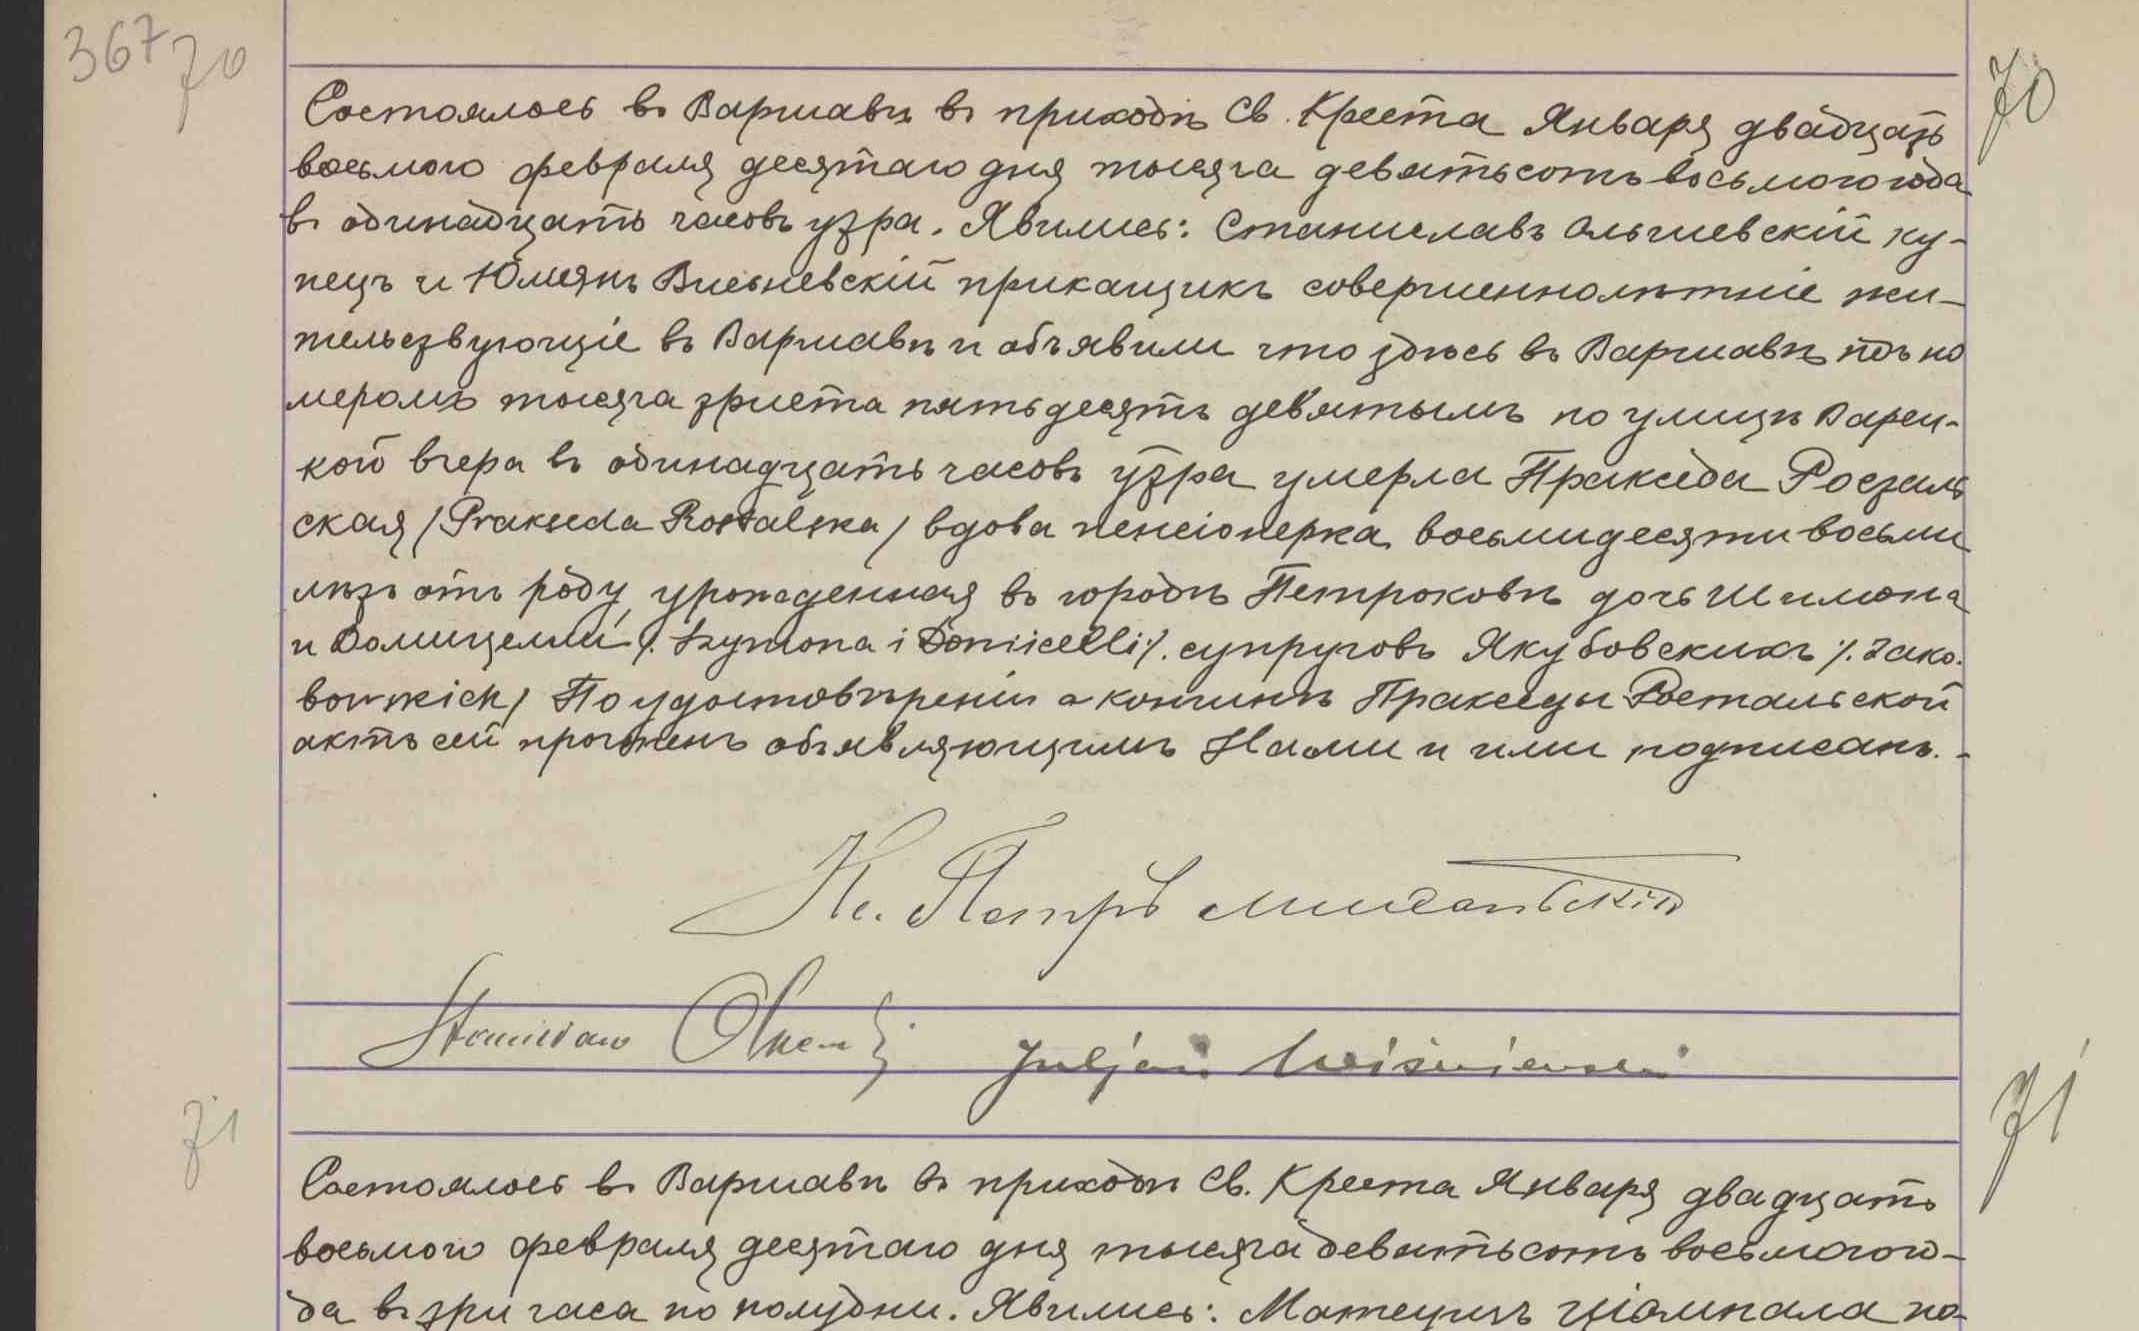 367 70
70
Состоялось въ Варшавѣ въ приходѣ Св. Креста Января двадцать
восьмого февраля десятаго дня тысяча девятьсотъ восьмого года
въ одинадцать часовъ утра. Явились: Станиславъ Ольшевскій ку-
пецъ и Юліянъ Висьневскій прикащикъ совершеннолѣтніе жи-
тельствующіе въ Варшавѣ и объявили что здѣсь въ Варшавѣ подъ но
меромъ тысяча триста пятьдесятъ девятымъ по улицѣ Варец-
кой вчера въ одинадцать часовъ утра умерла Пракседа Росталь
ская /Prakseda Rostalska/ вдова пенсіонерка восьмидесяти восьми
лѣтъ отъ роду урожденная въ городѣ Петроковѣ дочь Шимона
и Домицелли /. Szymona i Domicelli ./. супруговъ Якубовскихъ /. Jako.
bowskich / По удостовѣреніи а кончинѣ Пракседы Ростальской
актъ сей прочтенъ объявляющимъ Нами и ими подписанъ. -
Кс. Петръ
Stanisław Juljan Wiśniewski
71
71
Состоялось въ Варшавѣ въ приходѣ Св. Креста Января двадцать
восьмого февраля десятаго дня тысяча девятьсотъ восьмого го-
да въ три часа по полудни. Явились: Матеушъ по-